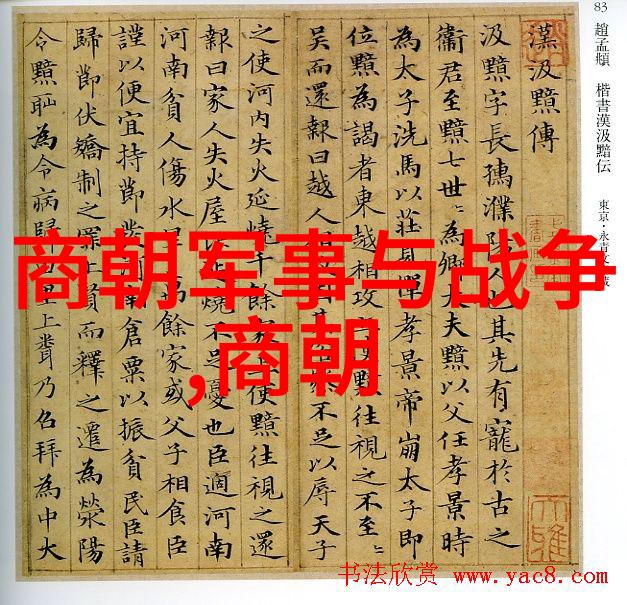 83 趙孟頫 楷書漢汲黯伝 東京・永青文蔵
漢汲黯傳
汲黯字長孺濮陽人也其先有寵於古之
衛君至黯七世〻為卿大夫黯以父任孝景時
為太子洗馬以莊見憚孝景帝崩太子即
位黯為謁者東越相攻上使黯往視之不至〻
吳而還報曰越人相其俗然不足以辱天子
之使河内失火延燒千餘家上使黯往視之還
報曰家人失火屋比延燒不足憂也臣適河南
河南貧人傷水旱萬餘家或父子相食臣
謹以便宜持節發河南倉粟以振貧民臣請
歸節伏矯制之罪上賢而釋之遷為滎陽
令黯恥為令病歸田里上聞乃召拜為中大
商朝军事与战争
,商朝
书法欣赏 www.yac8.com